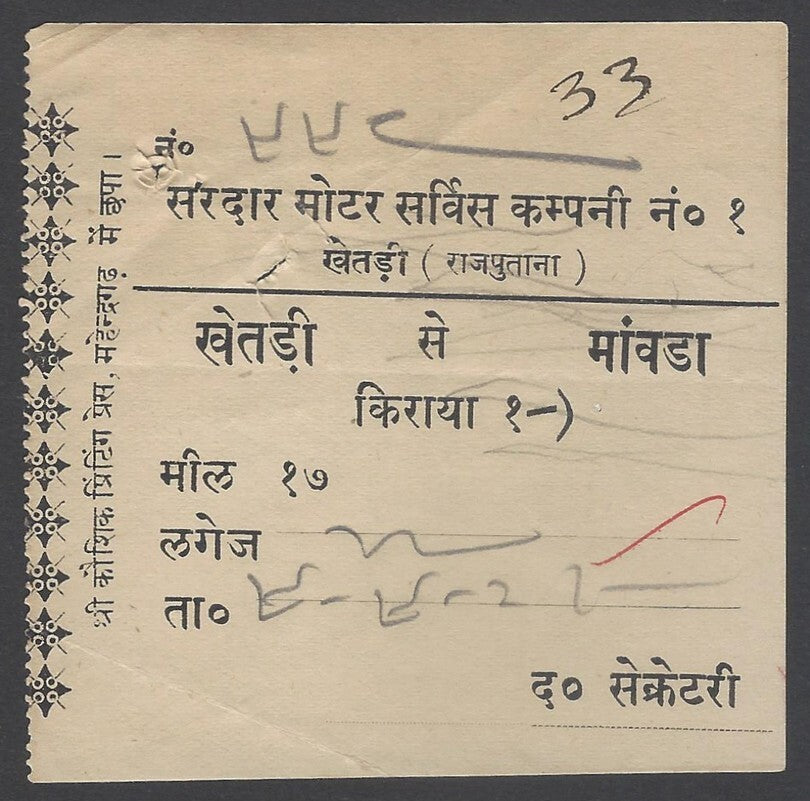 33
नं०
सरदार मोटर सर्विस कम्पनी नं० १
खेतड़ी ( राजपुताना )
खेतड़ी से मांवडा
किराया १-)
मील १७
लगेज
ता०
द० सेक्रेटरी
श्री कौशिक प्रिंटिंग प्रेस, महेन्द्रगढ़ में छुपा।